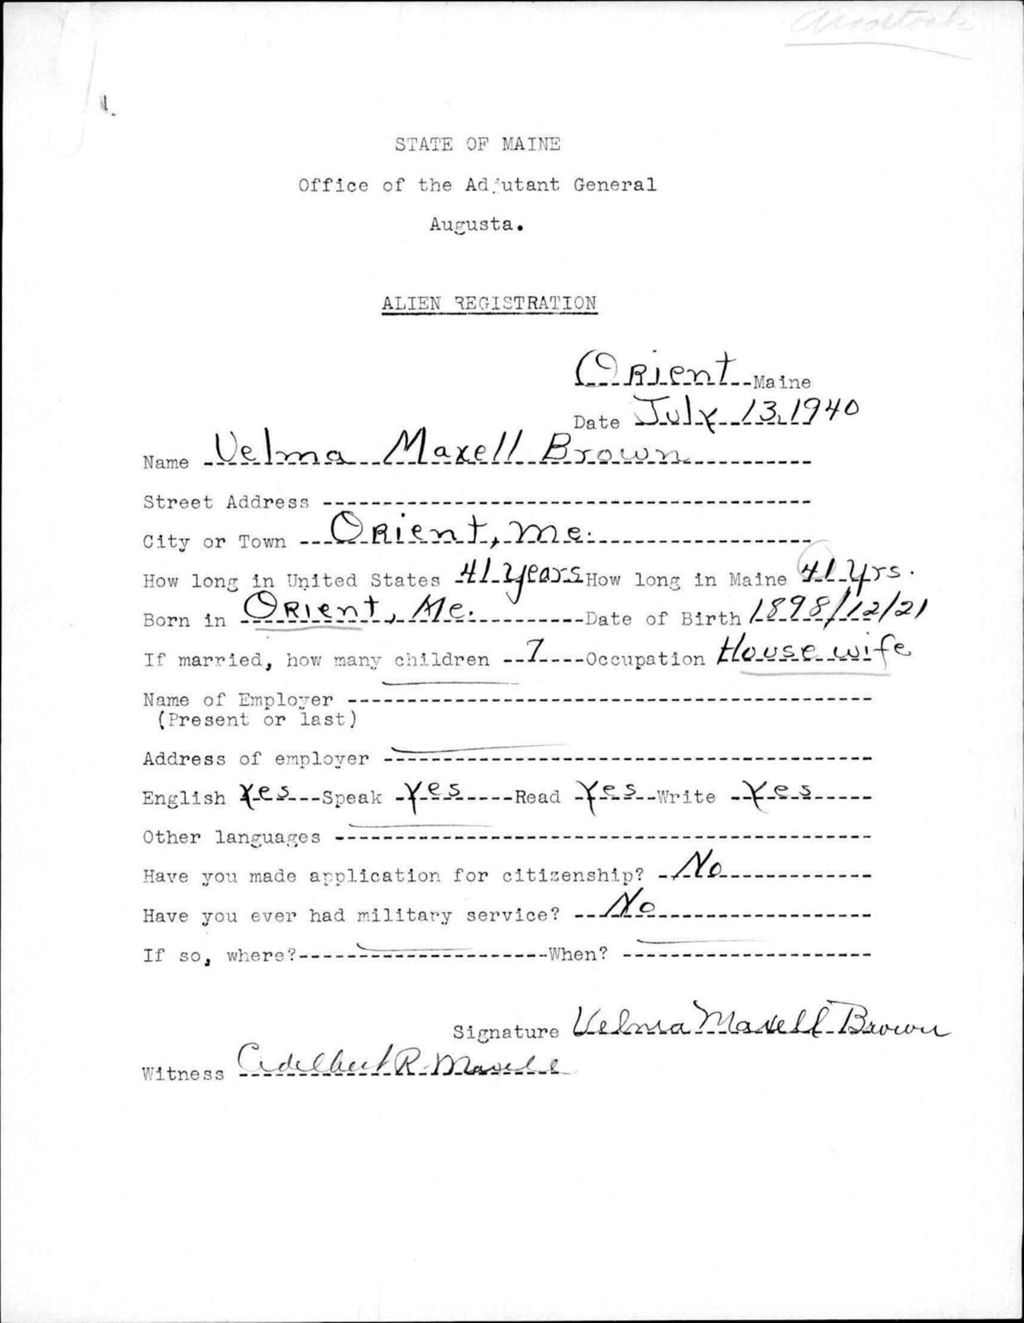 Aroostook
STATE OF MAINE
Office of the Adjutant General
Augusta.
ALIEN REGISTRATION
Orient Maine
Date July 13, 1940
Name Velma Maxell Brown
Street Address
City or Town Orient, Me.
How long in United States 41 years How long in Maine 41 yrs.
Born in Orient, Me. Date of Birth 1898/12/21
If married, how many children 7 Occupation House wife
Name of Employer
(Present or last)
Address of employer
English Yes Speak Yes Read Yes Write Yes
Other languages
Have you made application for citizenship? No
Have you ever had military service? No
If so, where? When?
Signature Velma Maxell Brown
Witness Adelbert R. Maxell